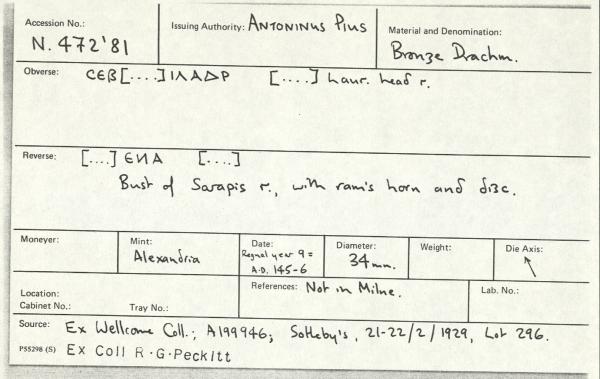 Accession No.:
N. 472'81
Issuing Authority: ANTONINUS PIUS
Material and Denomination:
Bronze Drachm.
Obverse: CEB[....]IAΔP [....] laur. head r.
Reverse: [....] ENA [....]
Bust of Sarapis r., with ram's horn and disc.
Moneyer:
Mint:
Alexandria
Date:
Regnal year 9 =
A.D. 145-6
Diameter:
34mm.
Weight:
Die Axis:
↖
Location:
Cabinet No.: Tray No.:
References: Not in Milne.
Lab. No.:
Source: Ex Wellcome Coll.; A199946; Sotheby's, 21-22/2/1929, Lot 296.
P55298 (S) Ex Coll R.G.Peckitt